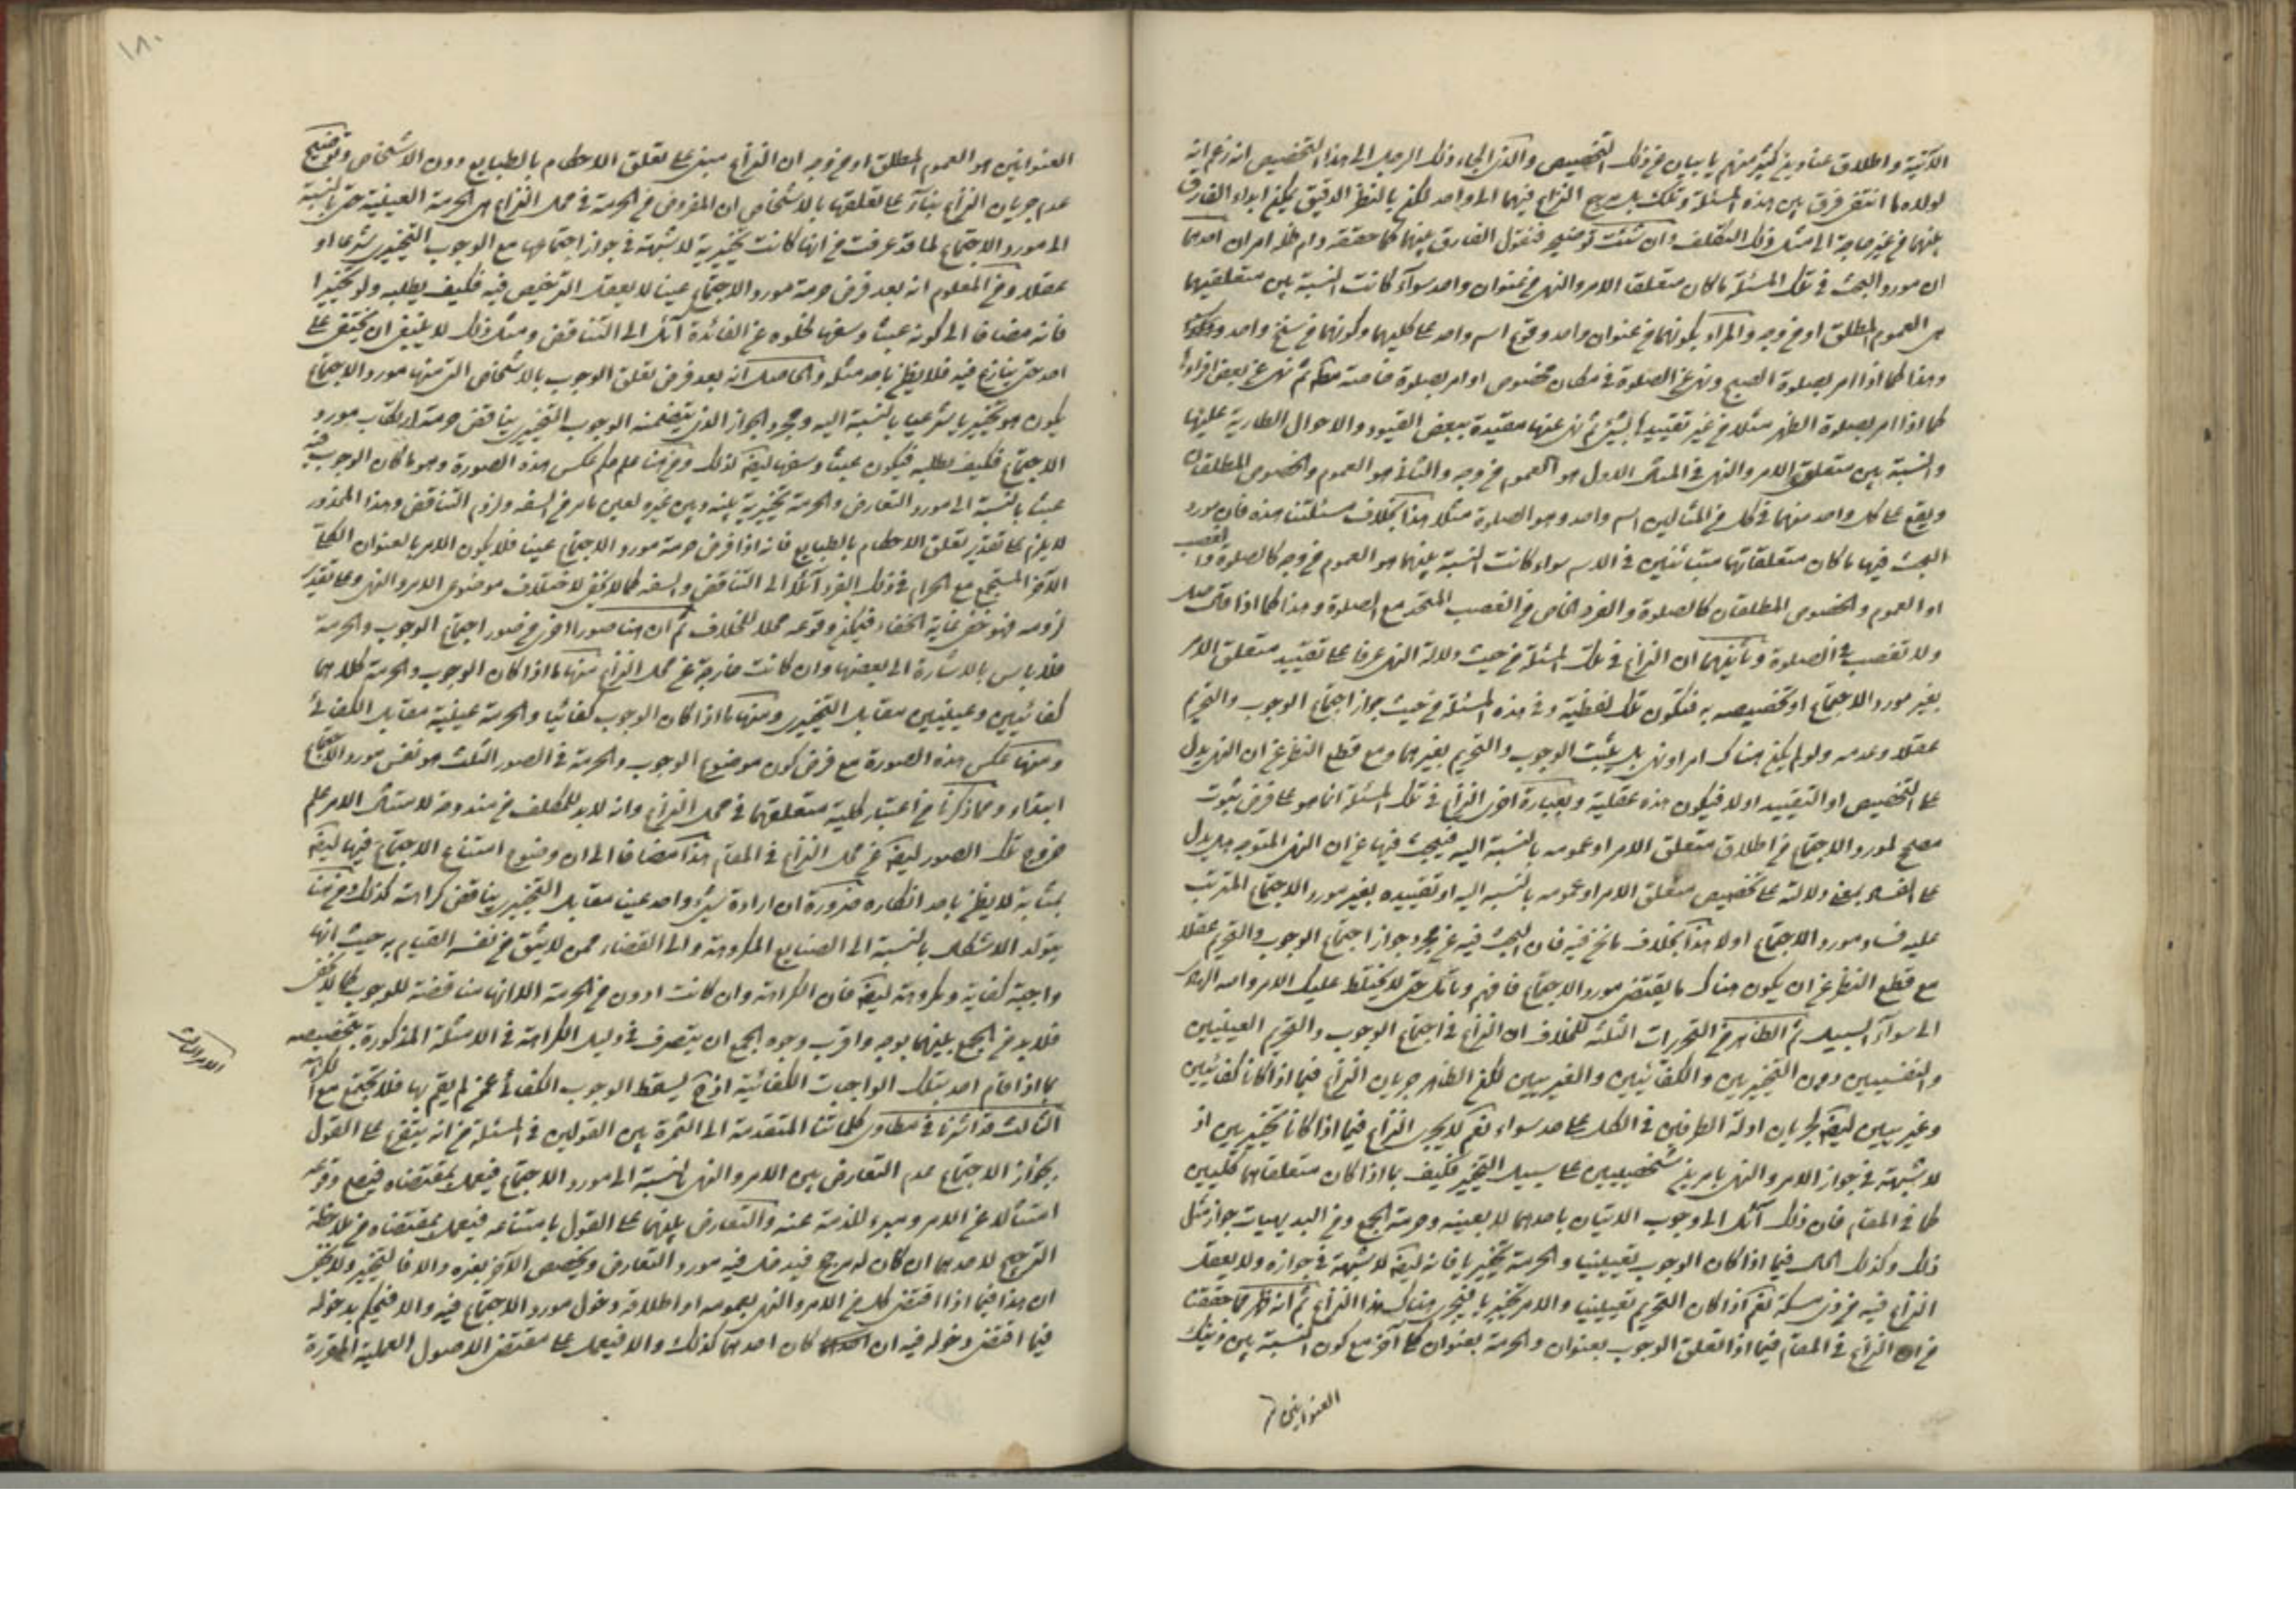 الآتية واطلاق عناوين كثير منهم يابيان من ذلك التخصيص والذي الجاء ذلك الرجل الى هذا التخصيص انه زعم انه
لولاه لما انتفى فرق بين هذه المسئلة وتلك بل يرجع النزاع فيهما الى واحد لكن بالنظر الدقيق يمكن ابداء الفارق
بينهما من غير حاجة الى مثل ذلك التكلف وان شئت توضيح فنقول الفارق بينهما كما حققه دام ظله امران احدهما
ان مورد البحث في تلك المسئلة ما كان متعلق الامر والنهي من عنوان واحد سواء كانت النسبة بين متعلقيهما
هي العموم المطلق او من وجه والمراد بكونهما من عنوان واحد وقوع اسم واحد على كليهما وكونهما من سنخ واحد
وهذا كما اذا امر بصلوة الصبح ونهى عن الصلوة في مكان مخصوص او امر بصلوة خاصة ثم نهى عن بعض افرادها
كما اذا امر بصلوة الظهر مثلا من غير تقييدها بشيء ثم نهى عنها مقيدة ببعض القيود والاحوال الطارية عليها
والنسبة بين متعلق الامر والنهي في المثال الاول هو العموم من وجه والثاني هو العموم والخصوص المطلقان
ويقع على كل واحد منهما في كل من المثالين اسم واحد وهو الصلوة مثلا هذا بخلاف مسئلتنا هذه فان مورد
البحث فيها ما كان متعلقاتها متبائنين في الاسم سواء كانت النسبة بينهما هو العموم من وجه كالصلوة والغصب
او العموم والخصوص المطلقان كالصلوة والفرد الخاص من الغصب المتحد مع الصلوة وهذا كما اذا قال صل
ولا تغصب في الصلوة وثانيهما ان النزاع في تلك المسئلة من حيث دلالة النهي عرفا على تقييد متعلق الامر
بغير مورد الاجتماع او تخصيصه به فتكون تلك لفظية وفي هذه المسئلة من حيث جواز اجتماع الوجوب والتحريم
عقلا وعدمه ولو لم يكن هناك امر او نهي بل يثبت الوجوب والتحريم بغيرهما ومع قطع النظر عن ان النهي يدل
على التخصيص او التقييد او لا فيكون هذه عقلية وبعبارة اخرى النزاع في تلك المسئلة انما هو على فرض ثبوت
مصلح لمورد الاجتماع من اطلاق متعلق الامر او عمومه بالنسبة اليه فيبحث فيها عن ان النهي المتوجه هل يدل
على الفساد بمعنى دلالته على تخصيص متعلق الامر او عمومه بالنسبة اليه او تقييده بغير مورد الاجتماع المترتب
عليه فساد مورد الاجتماع او لا هذا بخلاف ما نحن فيه فان البحث فيه عن مجرد جواز اجتماع الوجوب والتحريم عقلا
مع قطع النظر عن ان يكون هناك ما يقتضي مورد الاجتماع فافهم وتامل حتى لا يختلط عليك الامر والله الهادي
الى سواء السبيل ثم الظاهر من التحريرات الثلثة للخلاف ان النزاع في اجتماع الوجوب والتحريم العينيين
والنفسيين دون التخييريين والكفائيين والغيريين لكن الظاهر جريان النزاع فيما اذا كانا كفائيين
وغيريين ايضا لجريان ادلة الطرفين في الكل على حد سواء نعم لا يجري النزاع فيما اذا كانا تخييريين اذ
لا شبهة في جواز الامر والنهي بامرين شخصيين على سبيل التخيير فكيف بما اذا كان متعلقاهما كليين
كما في المقام فان ذلك آئل الى وجوب الاتيان باحدهما لا بعينه وحرمة الجمع ومن البديهيات جواز مثل
ذلك وكذلك الحال فيما اذا كان الوجوب تعيينيا والحرمة تخييريا فانه ايضا لا شبهة في جوازه ولا يعقل
النزاع فيه من ذي مسكة نعم اذا كان التحريم تعيينيا والامر تخييريا فيجري هناك هذا النزاع ثم انه ظهر مما حققنا
من ان النزاع في المقام فيما اذا تعلق الوجوب بعنوان والحرمة بعنوان كلي آخر مع كون النسبة بين ذينك
العنوانين
١٨٠
العنوانين هو العموم المطلق او من وجه ان النزاع مبني على تعلق الاحكام بالطبايع دون الاشخاص وتوضيح
عدم جريان النزاع بناء على تعلقها بالاشخاص ان المفروض من الحرمة في محل النزاع هي الحرمة العينية حتى بالنسبة
الى مورد الاجتماع لما قد عرفت من انها كانت تخييرية لا شبهة في جواز اجتماعها مع الوجوب التخييري شرعا او
عقلا ومن المعلوم انه بعد فرض حرمة مورد الاجتماع عينا لا يعقل الترخيص فيه فكيف بطلبه ولو تخييرا
فانه مضافا الى كونه عبثا وسفها لخلوه عن الفائدة آئل الى التناقض ومثل ذلك لا ينبغي ان يختفى على
احد حتى ينازع فيه فلا يظن باحد مثله والحاصل انه بعد فرض تعلق الوجوب بالاشخاص التي منها مورد الاجتماع
يكون هو تخييريا شرعيا بالنسبة اليه ومجرد الجواز الذي يتضمنه الوجوب التخييري يناقض حرمة ارتكاب مورد
الاجتماع فكيف بطلبه فيكون عبثا وسفها ايضا لذلك ومن هنا علم حكم عكس هذه الصورة وهو ما كان الوجوب فيه
عينيا بالنسبة الى مورد التعارض والحرمة تخييرية بينه وبين غيره لعين ما مر من السفه ولزوم التناقض وهذا المحذور
لا يلزم على تقدير تعلق الاحكام بالطبايع فانه اذا فرض حرمة مورد الاجتماع عينا فلا يكون الامر بالعنوان الكلي
الآخر المجتمع مع الحرام في ذلك الفرد آئلا الى التناقض والسفه كما لا يخفى لاختلاف موضوعي الامر والنهي وعلى تقدير
لزومه فهو خفي غاية الخفاء فيمكن وقوعه محلا للخلاف ثم ان هنا صورا اخرى من صور اجتماع الوجوب والحرمة
فلا باس بالاشارة الى بعضها وان كانت خارجة عن محل النزاع منها ما اذا كان الوجوب والحرمة كلاهما
كفائيين وعينيين مقابل التخييري ومنها ما اذا كان الوجوب كفائيا والحرمة عينية مقابل الكفائي
ومنها عكس هذه الصورة مع فرض كون موضوع الوجوب والحرمة في الصور الثلث هو نفس مورد الاجتماع
ابتداء ومما ذكرنا من اعتبار كلية متعلقهما في محل النزاع وانه لا بد للمكلف من مندوحة لامتثال الامر علم
خروج تلك الصور ايضا عن محل النزاع في المقام هذا مضافا الى ان وضوح امتناع الاجتماع فيها ايضا
بمثابة لا يظن باحد انكاره ضرورة ان ارادة شيء واحد عينا مقابل التخييري يناقض كراهته كذلك ومن هنا
يتولد الاشكال بالنسبة الى الصنايع المكروهة والى القضاء ممن لا يثق من نفسه القيام به حيث انها
واجبة كفاية ومكروهة ايضا فان الكراهة وان كانت ادون من الحرمة الا انها مناقضة للوجوب كما لا يخفى
فلا بد من الجمع بينهما بوجه واقرب وجوه الجمع ان يتصرف في دليل الكراهة في الامثلة المذكورة بتخصيصه
بما اذا قام احد بتلك الواجبات الكفائية اذ ح يسقط الوجوب الكفائي عمن لم يقم بها فلا يجتمع مع الكراهة
الثالث قد اشرنا في مطاوي كلماتنا المتقدمة الى الثمرة بين القولين في المسئلة من انه يتفرع على القول
بجواز الاجتماع عدم التعارض بين الامر والنهي بالنسبة الى مورد الاجتماع فيعمل بمقتضاه فيصح وقوعه
امتثالا عن الامر ومبرء للذمة عنه والتعارض بينهما على القول بامتناعه فيعمل بمقتضاه من ملاحظة
الترجيح لاحدهما ان كان له مرجح فيدخل فيه مورد التعارض ويخصص الآخر بغيره والا فالتخيير ولا يخفى
ان هذا فيما اذا اقتضى كل من الامر والنهي بعمومه او اطلاقه دخول مورد الاجتماع فيه والا فيحكم بدخوله
فيما اقتضى دخوله فيه ان كان احدهما كذلك والا فيعمل على مقتضى الاصول العملية المقررة
الامر الثالث